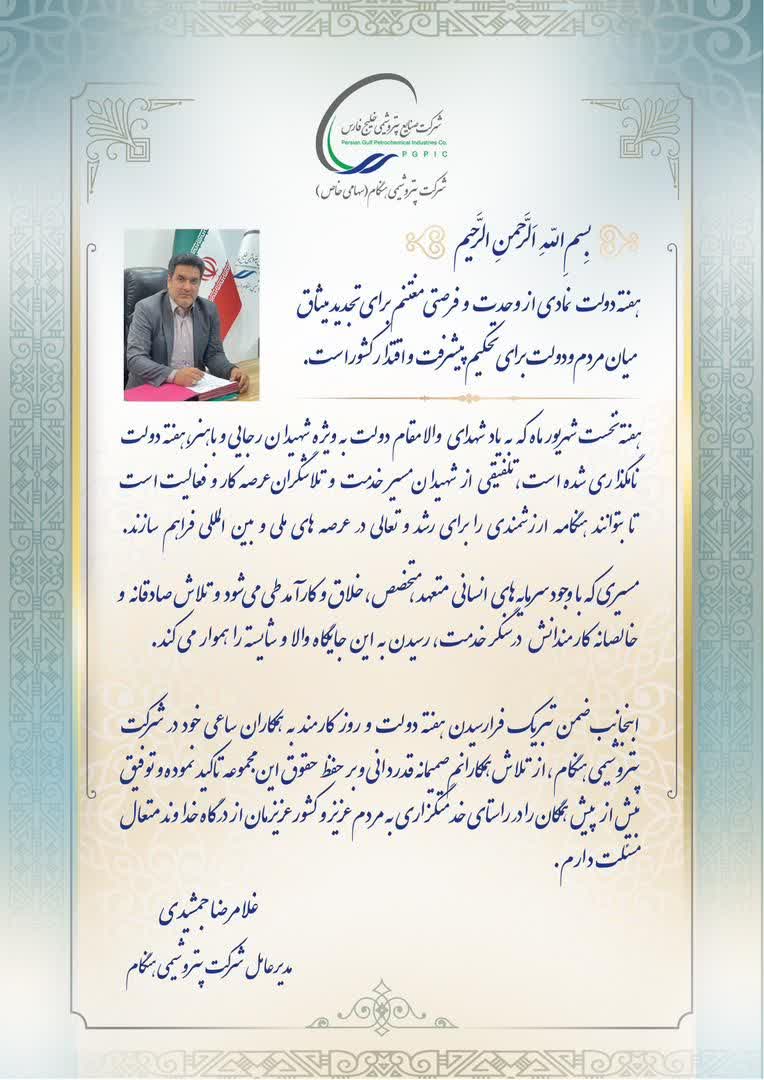 شرکت صنایع پتروشیمی خلیج فارس
Persian Gulf Petrochemical Industries Co.
P G P I C
شرکت پتروشیمی هنگام (سهامی خاص)
بِسمِ اللّهِ الرَّحمنِ الرَّحیم
هفته دولت نمادی از وحدت و فرصتی مغتنم برای تجدید میثاق
میان مردم و دولت برای تحکیم پیشرفت و اقتدار کشور است.
هفته نخست شهریور ماه که به یاد شهدای والامقام دولت به ویژه شهیدان رجایی و باهنر، هفته دولت
نامگذاری شده است، تلفیقی از شهیدان مسیر خدمت و تلاشگران عرصه کار و فعالیت است
تا بتوانند هنگامه ارزشمندی را برای رشد و تعالی در عرصه های ملی و بین المللی فراهم سازند.
مسیری که با وجود سرمایه های انسانی متعهد، متخصص، خلاق و کارآمد طی می شود و تلاش صادقانه و
خالصانه کارمندانش درسنگر خدمت، رسیدن به این جایگاه والا و شایسته را هموار می کند.
اینجانب ضمن تبریک فرارسیدن هفته دولت و روز کارمند به همکاران ساعی خود در شرکت
پتروشیمی هنگام، از تلاش همکارانم صمیمانه قدردانی و بر حفظ حقوق این مجموعه تاکید نموده و توفیق
بیش از پیش همگان را در راستای خدمتگزاری به مردم عزیز و کشور عزیزمان از درگاه خداوند متعال
مسئلت دارم.
غلامرضا جمشیدی
مدیرعامل شرکت پتروشیمی هنگام